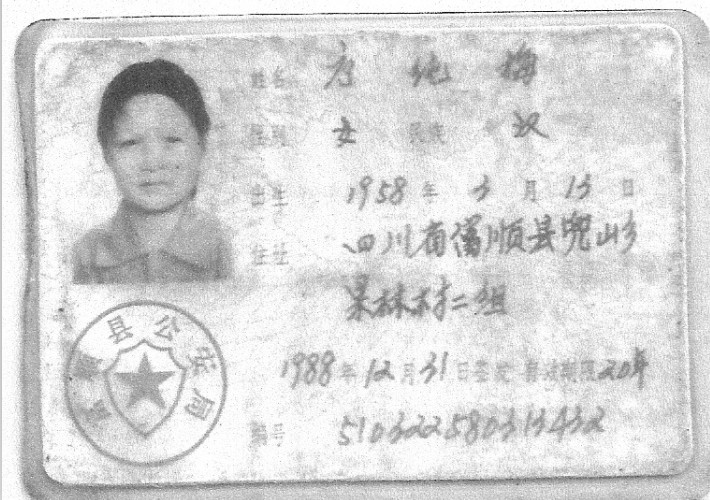 姓名 唐纯梅
性别 女 民族 汉
出生 1958年3月13日
住址 四川省富顺县兜山乡
果林村二组
1988年12月31日签发 有效期限20年
编号 510322580313432
富顺县公安局